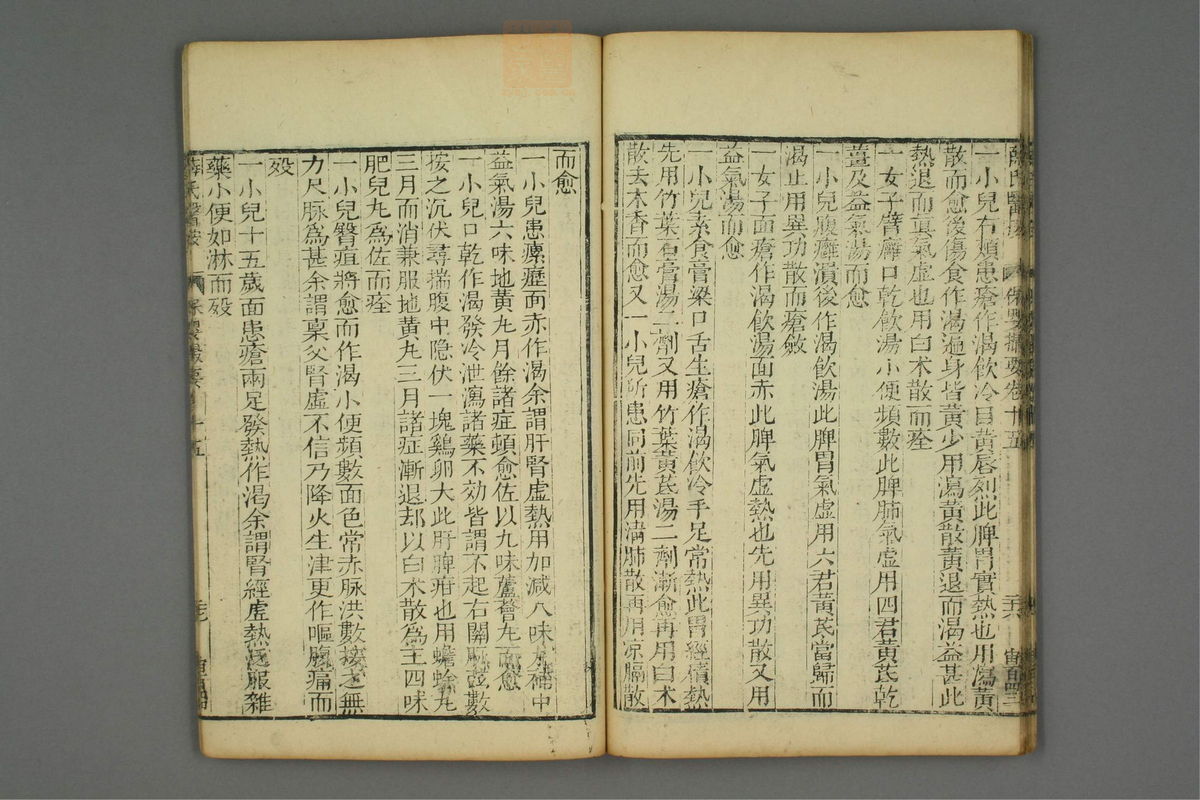 薛氏醫按 保嬰撮要卷十五
一小兒右頰患瘡作渴飲冷目黃唇烈此脾胃實熱也用瀉黃
散而愈後傷食作渴遍身皆黃少用瀉黃散黃退而渴益甚此
熱退而眞氣虛也用白朮散而痊
一女子臂癰口乾飲湯小便頻數此脾肺氣虛用四君黃芪乾
薑及益氣湯而愈
一小兒腹癰潰後作渴飲湯此脾胃氣虛用六君黃芪當歸而
渴止用異功散而瘡斂
一女子面瘡作渴飲湯面赤此脾氣虛熱也先用異功散又用
益氣湯而愈
一小兒素食膏粱口舌生瘡作渴飲冷手足常熱此胃經積熱
先用竹葉石膏湯二劑又用竹葉黃芪湯二劑漸愈再用白朮
散去木香而愈又一小兒所患同前先用清肺散再用凉膈散
而愈
一小兒患瘰癧面赤作渴余謂肝腎虛熱用加減八味丸補中
益氣湯六味地黃丸月餘諸症頓愈佐以九味蘆薈丸而愈
一小兒口乾作渴發冷泄瀉諸藥不効皆謂不起右關脉弦數
按之沉伏尋揣腹中隐伏一塊鷄卵大此肝脾疳也用蟾蜍丸
三月而消兼服地黃丸三月諸症漸退却以白朮散爲主四味
肥兒丸爲佐而痊
一小兒臀疽將愈而作渴小便頻數面色常赤脉洪數按之無
力尺脉爲甚余謂禀父腎虛不信乃降火生津更作嘔腹痛而
歿
一小兒十五歲面患瘡兩足發熱作渴余謂腎經虛熱不信服雜
藥小便如淋而歿
薛氏醫按